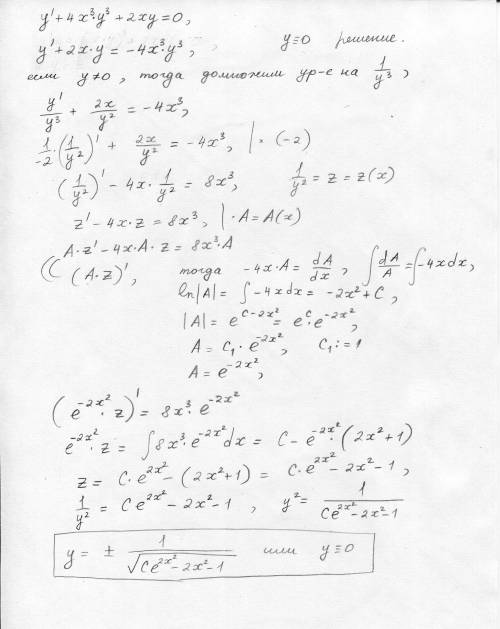 y' + 4x³·y³ + 2xy = 0,
y' + 2x·y = -4x³·y³, y≡0 решение.
если y≠0, тогда домножим ур-е на 1/y³,
y'/y³ + 2x/y² = -4x³,
1/-2·(1/y²)' + 2x/y² = -4x³, |×(-2)
(1/y²)' - 4x·1/y² = 8x³, 1/y² = z = z(x)
z' - 4x·z = 8x³, |·A = A(x)
A·z' - 4x·A·z = 8x³·A
(A·z)', тогда -4x·A = dA/dx, ∫dA/A = ∫-4xdx,
ln|A| = ∫-4xdx = -2x² + C,
|A| = e^(C-2x²) = e^C·e^(-2x²),
A = C₁·e^(-2x²), C₁:=1
A = e^(-2x²),
(e^(-2x²)·z)' = 8x³·e^(-2x²)
e^(-2x²)·z = ∫8x³·e^(-2x²)dx = C - e^(-2x²)·(2x²+1)
z = C·e^(2x²) - (2x²+1) = C·e^(2x²) - 2x² - 1,
1/y² = Ce^(2x²) - 2x² - 1, y² = 1/(Ce^(2x²) - 2x² - 1)
y = ± 1/√(Ce^(2x²) - 2x² - 1) или y≡0